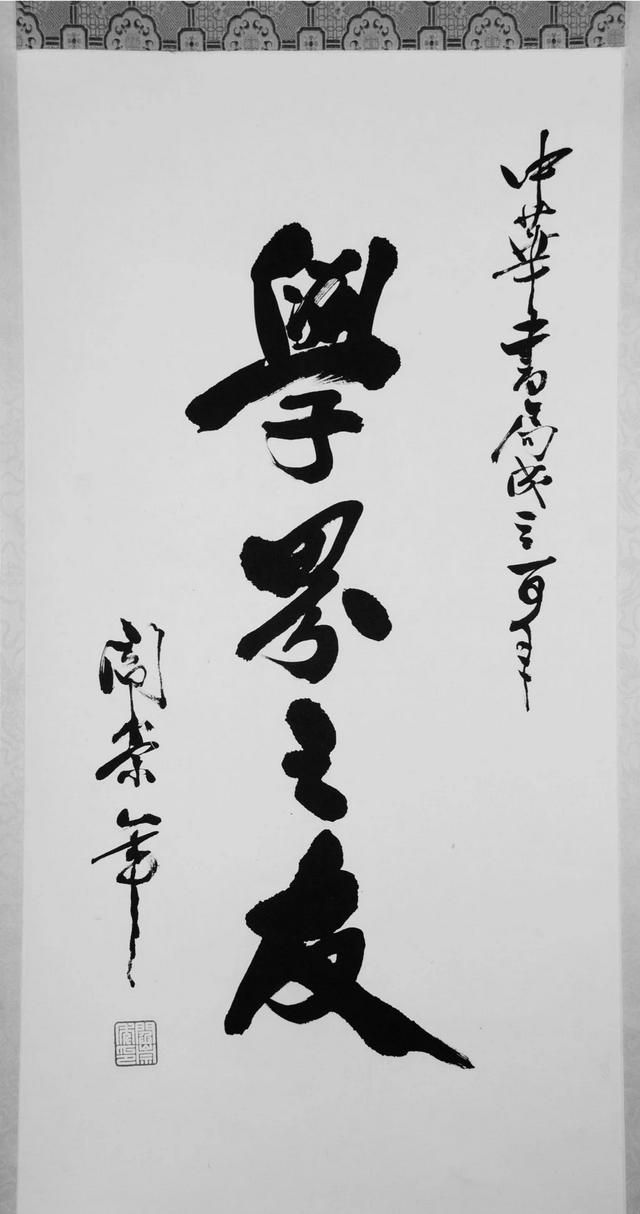 中華書局成立百年
學界之友
閻崇年